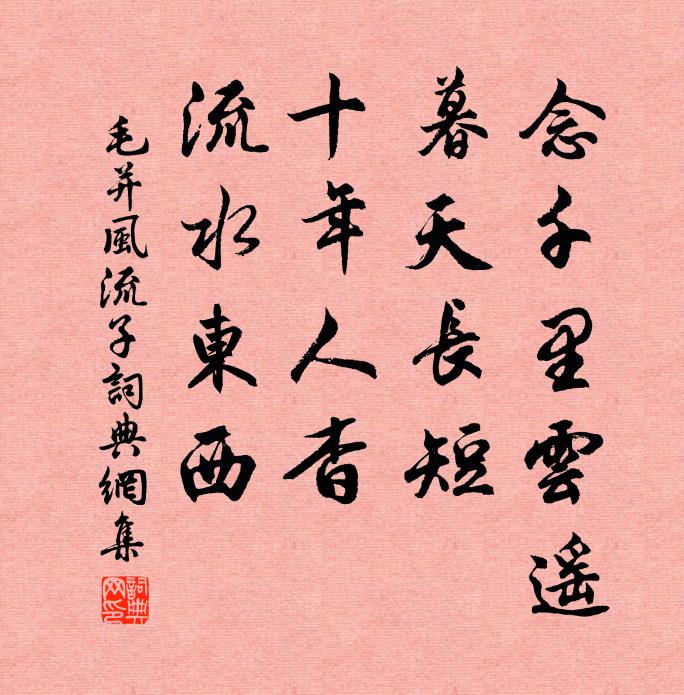 念千里雲遥
暮天長短
十年人杳
流水東西
毛幵風流子詞典網集
詞典網印